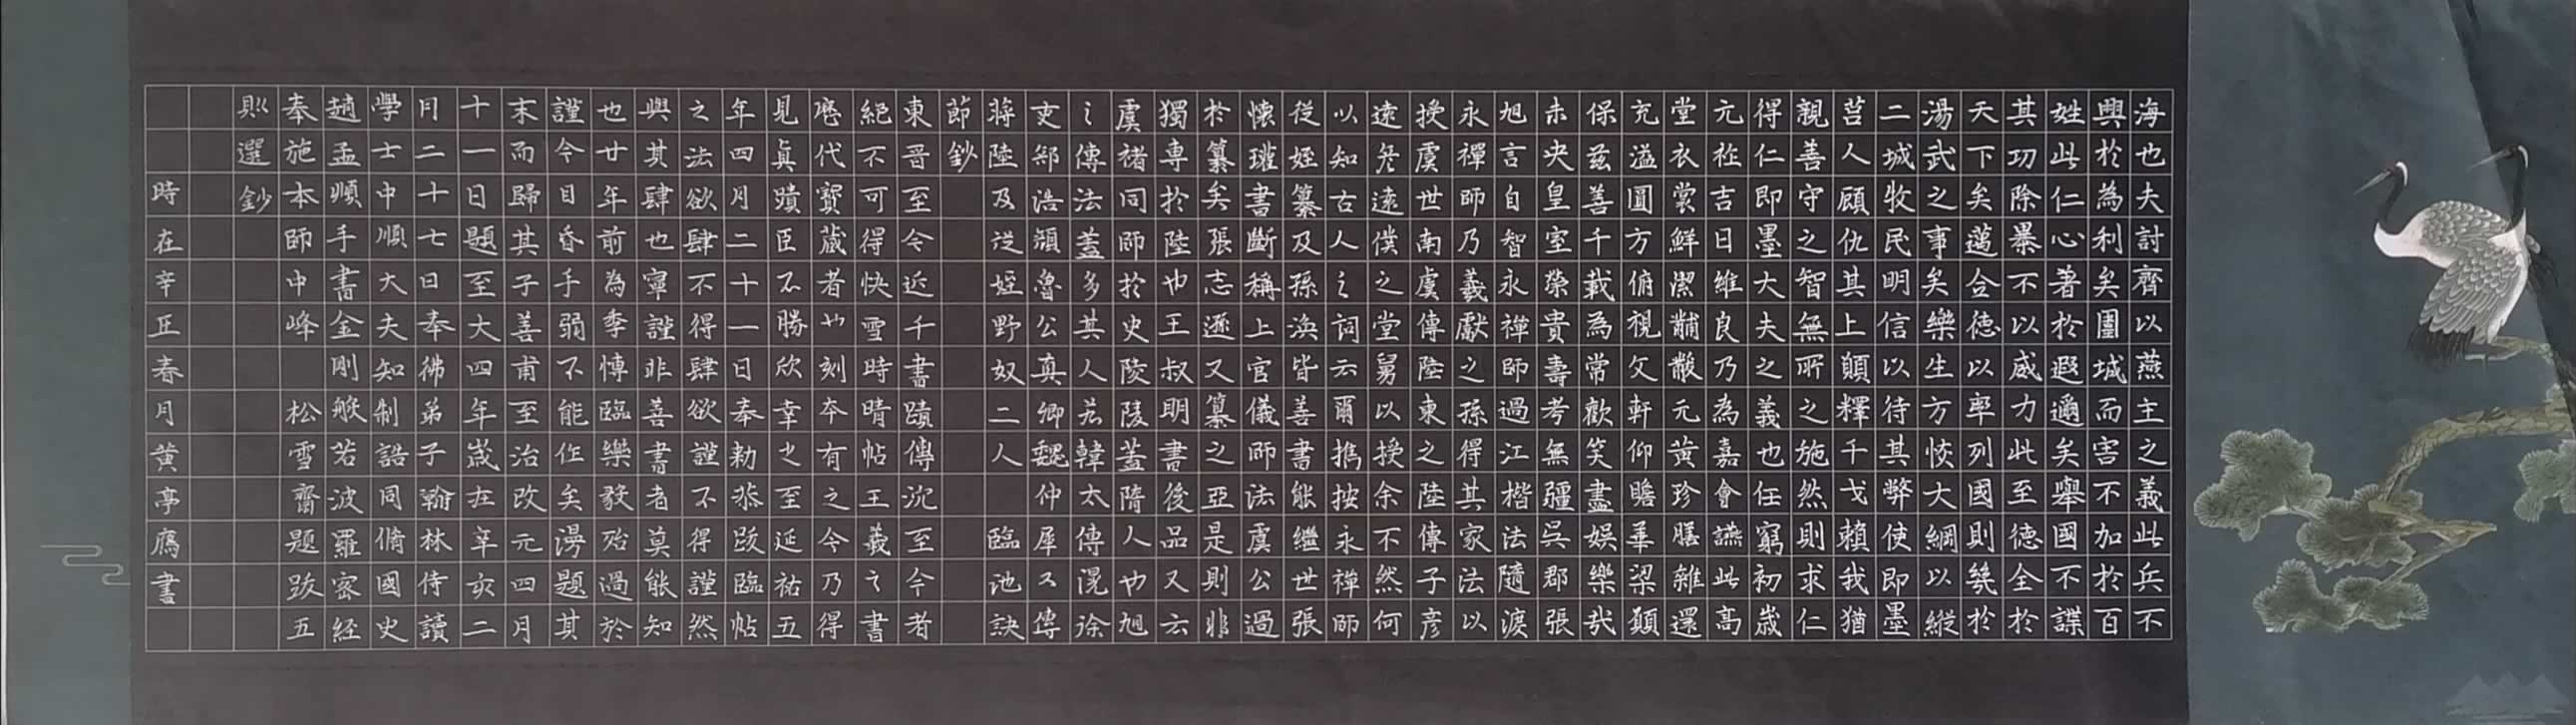 海也夫討齊以燕主之義此兵不
興於為利矣圍城而害不加於百
姓此仁心著於遐邇矣舉國不諜
其功除暴不以威力此至德全於
天下矣邁全德以率列國則幾於
湯武之事矣樂生方恢大綱以縱
二城牧民明信以待其弊使即墨
莒人顧仇其上顚釋千戈賴我猶
親善守之智無所之施然則求仁
得仁即墨大夫之義也任窮初歲
元社吉日維良乃為嘉會讌此高
堂衣裳鮮潔黼黻元黃珍膳雜還
充溢圓方俯視仌軒仰瞻華梁顛
保茲善千載為常歡笑盡娛樂哉
未央皇室榮貴壽考無疆吳郡張
旭言自智永禪師過江楷法隨渡
永禪師乃羲獻之孫得其家法以
授虞世南虞傳陸東之陸傳子彥
遠矣遠僕之堂舅以授余不然何
以知古人之詞云爾攜按永禪師
從姪纂及孫渙皆善書能繼世張
懷瓘書斷稱上官儀師法虞公過
於纂矣張志遜又纂之亞是則非
獨專於陸也王叔明書後品又云
虞褚同師於史陵陵蓋隋人也旭
之傳法蓋多其人若韓太傅滉徐
吏郎涪頎魯公真卿魏仲犀又傳
蔣陸及從姪野奴二人 臨池訣
節鈔
東晉至今近千書蹟傳沇至今者
紀不可得快雪時晴帖王羲之書
歷代寶藏者艹刻本有之今乃得
見真蹟臣不勝欣幸之至延祐五
年四月二十一日奉勅恭跋臨帖
之法欲肆不得肆欲謹不得謹然
與其肆也寧謹非善書者莫能知
也廿年前為季慱臨樂毅殆過於
謹今目昏手弱不能作矣漫題其
末而歸其子善甫至治改元四月
十一日題至大四年歲在辛亥二
月二十七日奉彿弟子翰林侍讀
學士中順大夫知制誥同脩國史
趙孟頫手書金剛般若波羅密經
奉施本師中峰 松雪齋題跋五
熙選鈔
時在辛正春月黃亭鴈書